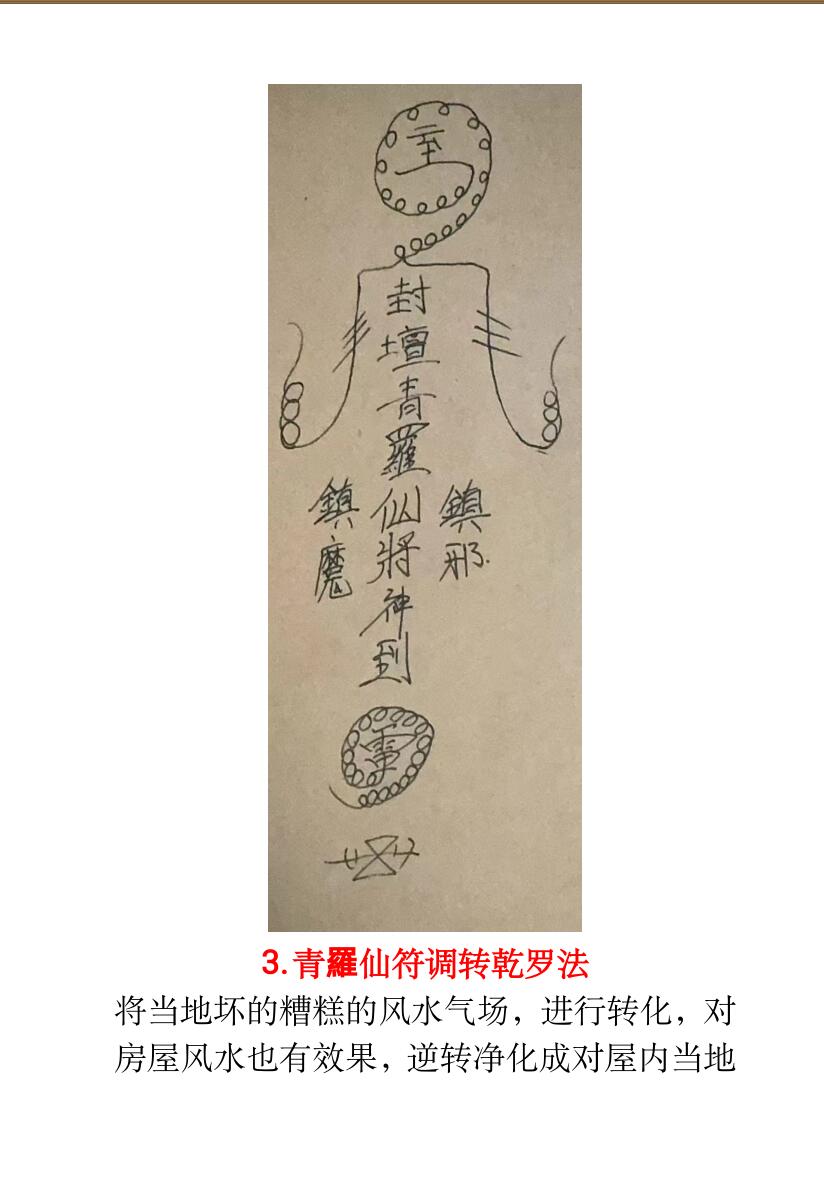 封壇青羅仙將神到
鎮邪
鎮魔
3.青羅仙符调转乾罗法
将当地坏的糟糕的风水气场，进行转化，对
房屋风水也有效果，逆转净化成对屋内当地